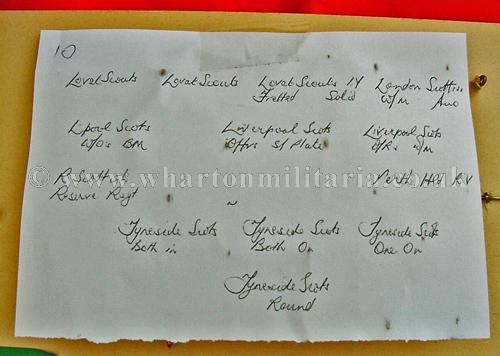 10
Lovat Scouts Lovat Scouts Lovat Scouts IY London Scottish
Fretted Solid W/M Ano
L'pool Scots Liverpool Scots Liverpool Scots
W/Os BM Offrs Sl Plate O/Rs W/M
R Scottish
Reserve Regt ~
© www.whartonmilitaria.co.uk
Tyneside Scots Tyneside Scots Tyneside Scots
Both in Both On One On
Tyneside Scots
Round